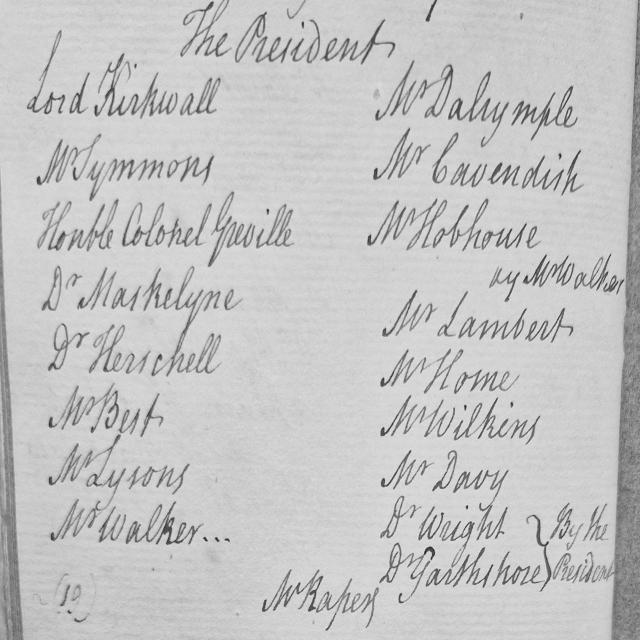 The President
Lord Kirkwall
Mr Symmons
Honble Colonel Greville
Dr Maskelyne
Dr Herschell
Mr Best
Mr Lysons
Mr Walker...
(19)
Mr Dalrymple
Mr Cavendish
Mr Hobhouse
by Mr Walker
Mr Lambert
Mr Home
Mr Wilkins
Mr Davy
Dr Wright } By the
Dr Garthshore } President
Mr Raper